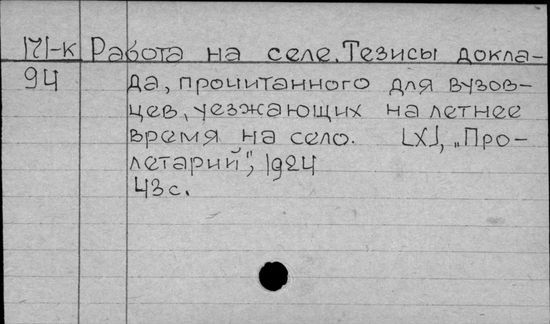 171-к Работа на селе. Тезисы докла-
94 да, прочитанного для вузов-
цев, уезжающих на летнее
время на село. [Х], „Про-
летарий", 1924
43 с.